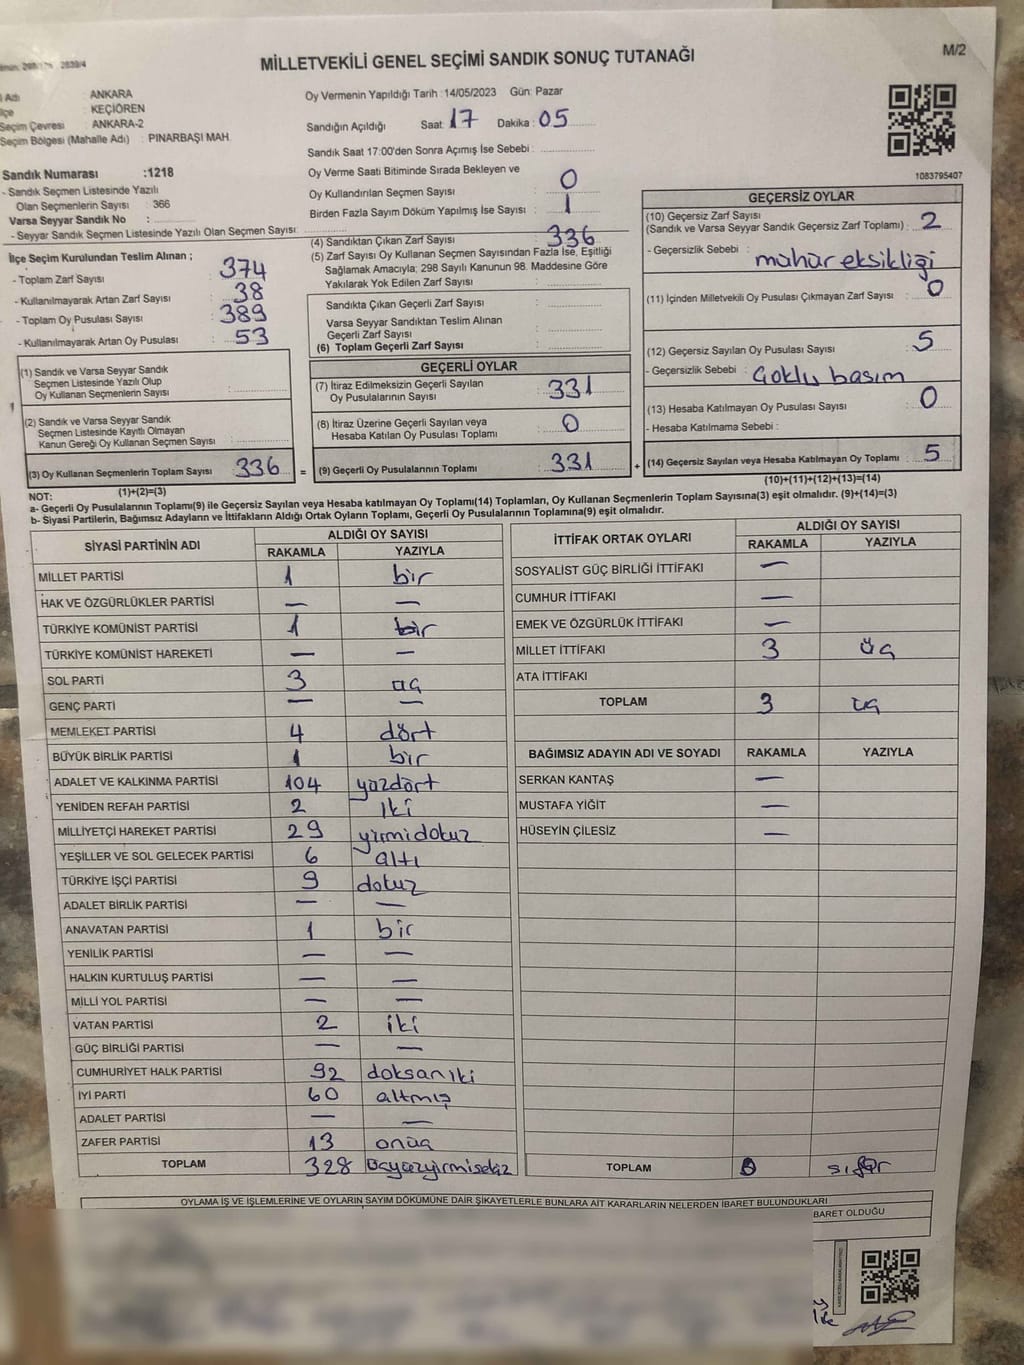 2839/4
MİLLETVEKİLİ GENEL SEÇİMİ SANDIK SONUÇ TUTANAĞI
M/2
Adı ANKARA
KEÇİÖREN
Seçim Çevresi ANKARA-2
Seçim Bölgesi (Mahalle Adı) : PINARBAŞI MAH.
Sandık Numarası :1218
- Sandık Seçmen Listesinde Yazılı
Olan Seçmenlerin Sayısı : 366
Varsa Seyyar Sandık No :
- Seyyar Sandık Seçmen Listesinde Yazılı Olan Seçmen Sayısı:
Oy Vermenin Yapıldığı Tarih :14/05/2023 Gün: Pazar
Sandığın Açıldığı Saat: 17 Dakika : 05
Sandık Saat 17:00'den Sonra Açımış İse Sebebi :
Oy Verme Saati Bitiminde Sırada Bekleyen ve
Oy Kullandırılan Seçmen Sayısı : 0
Birden Fazla Sayım Döküm Yapılmış İse Sayısı : 1
1083795407
İlçe Seçim Kurulundan Teslim Alınan ;
- Toplam Zarf Sayısı : 374
- Kullanılmayarak Artan Zarf Sayısı : 38
- Toplam Oy Pusulası Sayısı : 389
- Kullanılmayarak Artan Oy Pusulası : 53
(1) Sandık ve Varsa Seyyar Sandık
Seçmen Listesinde Yazılı Olup
Oy Kullanan Seçmenlerin Sayısı :
(2) Sandık ve Varsa Seyyar Sandık
Seçmen Listesinde Kayıtlı Olmayan
Kanun Gereği Oy Kullanan Seçmen Sayısı :
(3) Oy Kullanan Seçmenlerin Toplam Sayısı 336
(1)+(2)=(3)
(4) Sandıktan Çıkan Zarf Sayısı : 336
(5) Zarf Sayısı Oy Kullanan Seçmen Sayısından Fazla İse, Eşitliği
Sağlamak Amacıyla; 298 Sayılı Kanunun 98. Maddesine Göre
Yakılarak Yok Edilen Zarf Sayısı :
Sandıkta Çıkan Geçerli Zarf Sayısı :
Varsa Seyyar Sandıktan Teslim Alınan
Geçerli Zarf Sayısı :
(6) Toplam Geçerli Zarf Sayısı :
GEÇERLİ OYLAR
(7) İtiraz Edilmeksizin Geçerli Sayılan
Oy Pusulalarının Sayısı : 331
(8) İtiraz Üzerine Geçerli Sayılan veya
Hesaba Katılan Oy Pusulası Toplamı : 0
= (9) Geçerli Oy Pusulalarının Toplamı : 331 +
GEÇERSİZ OYLAR
(10) Geçersiz Zarf Sayısı
(Sandık ve Varsa Seyyar Sandık Geçersiz Zarf Toplamı) : 2
- Geçersizlik Sebebi : mühür eksikliği
(11) İçinden Milletvekili Oy Pusulası Çıkmayan Zarf Sayısı : 0
(12) Geçersiz Sayılan Oy Pusulası Sayısı : 5
- Geçersizlik Sebebi : Çoklu basım
(13) Hesaba Katılmayan Oy Pusulası Sayısı : 0
- Hesaba Katılmama Sebebi :
(14) Geçersiz Sayılan veya Hesaba Katılmayan Oy Toplamı : 5
(10)+(11)+(12)+(13)=(14)
NOT:
a- Geçerli Oy Pusulalarının Toplamı(9) ile Geçersiz Sayılan veya Hesaba katılmayan Oy Toplamı(14) Toplamları, Oy Kullanan Seçmenlerin Toplam Sayısına(3) eşit olmalıdır. (9)+(14)=(3)
b- Siyasi Partilerin, Bağımsız Adayların ve İttifakların Aldığı Ortak Oyların Toplamı, Geçerli Oy Pusulalarının Toplamına(9) eşit olmalıdır.
SİYASİ PARTİNİN ADI ALDIĞI OY SAYISI
RAKAMLA YAZIYLA
MİLLET PARTİSİ 1 bir
HAK VE ÖZGÜRLÜKLER PARTİSİ — —
TÜRKİYE KOMÜNİST PARTİSİ 1 bir
TÜRKİYE KOMÜNİST HAREKETİ — —
SOL PARTİ 3 üç
GENÇ PARTİ — —
MEMLEKET PARTİSİ 4 dört
BÜYÜK BİRLİK PARTİSİ 1 bir
ADALET VE KALKINMA PARTİSİ 104 yüzdört
YENİDEN REFAH PARTİSİ 2 iki
MİLLİYETÇİ HAREKET PARTİSİ 29 yirmidokuz
YEŞİLLER VE SOL GELECEK PARTİSİ 6 altı
TÜRKİYE İŞÇİ PARTİSİ 9 dokuz
ADALET BİRLİK PARTİSİ — —
ANAVATAN PARTİSİ 1 bir
YENİLİK PARTİSİ — —
HALKIN KURTULUŞ PARTİSİ — —
MİLLİ YOL PARTİSİ — —
VATAN PARTİSİ 2 iki
GÜÇ BİRLİĞİ PARTİSİ — —
CUMHURİYET HALK PARTİSİ 92 doksaniki
İYİ PARTİ 60 altmış
ADALET PARTİSİ — —
ZAFER PARTİSİ 13 onüç
TOPLAM 328 Üçyüzyirmisekiz
İTTİFAK ORTAK OYLARI ALDIĞI OY SAYISI
RAKAMLA YAZIYLA
SOSYALİST GÜÇ BİRLİĞİ İTTİFAKI —
CUMHUR İTTİFAKI —
EMEK VE ÖZGÜRLÜK İTTİFAKI —
MİLLET İTTİFAKI 3 üç
ATA İTTİFAKI
TOPLAM 3 üç
BAĞIMSIZ ADAYIN ADI VE SOYADI RAKAMLA YAZIYLA
SERKAN KANTAŞ —
MUSTAFA YİĞİT —
HÜSEYİN ÇİLESİZ —
TOPLAM 0 sıfır
OYLAMA İŞ VE İŞLEMLERİNE VE OYLARIN SAYIM DÖKÜMÜNE DAİR ŞİKAYETLERLE BUNLARA AİT KARARLARIN NELERDEN İBARET BULUNDUKLARI
BARET OLDUĞU